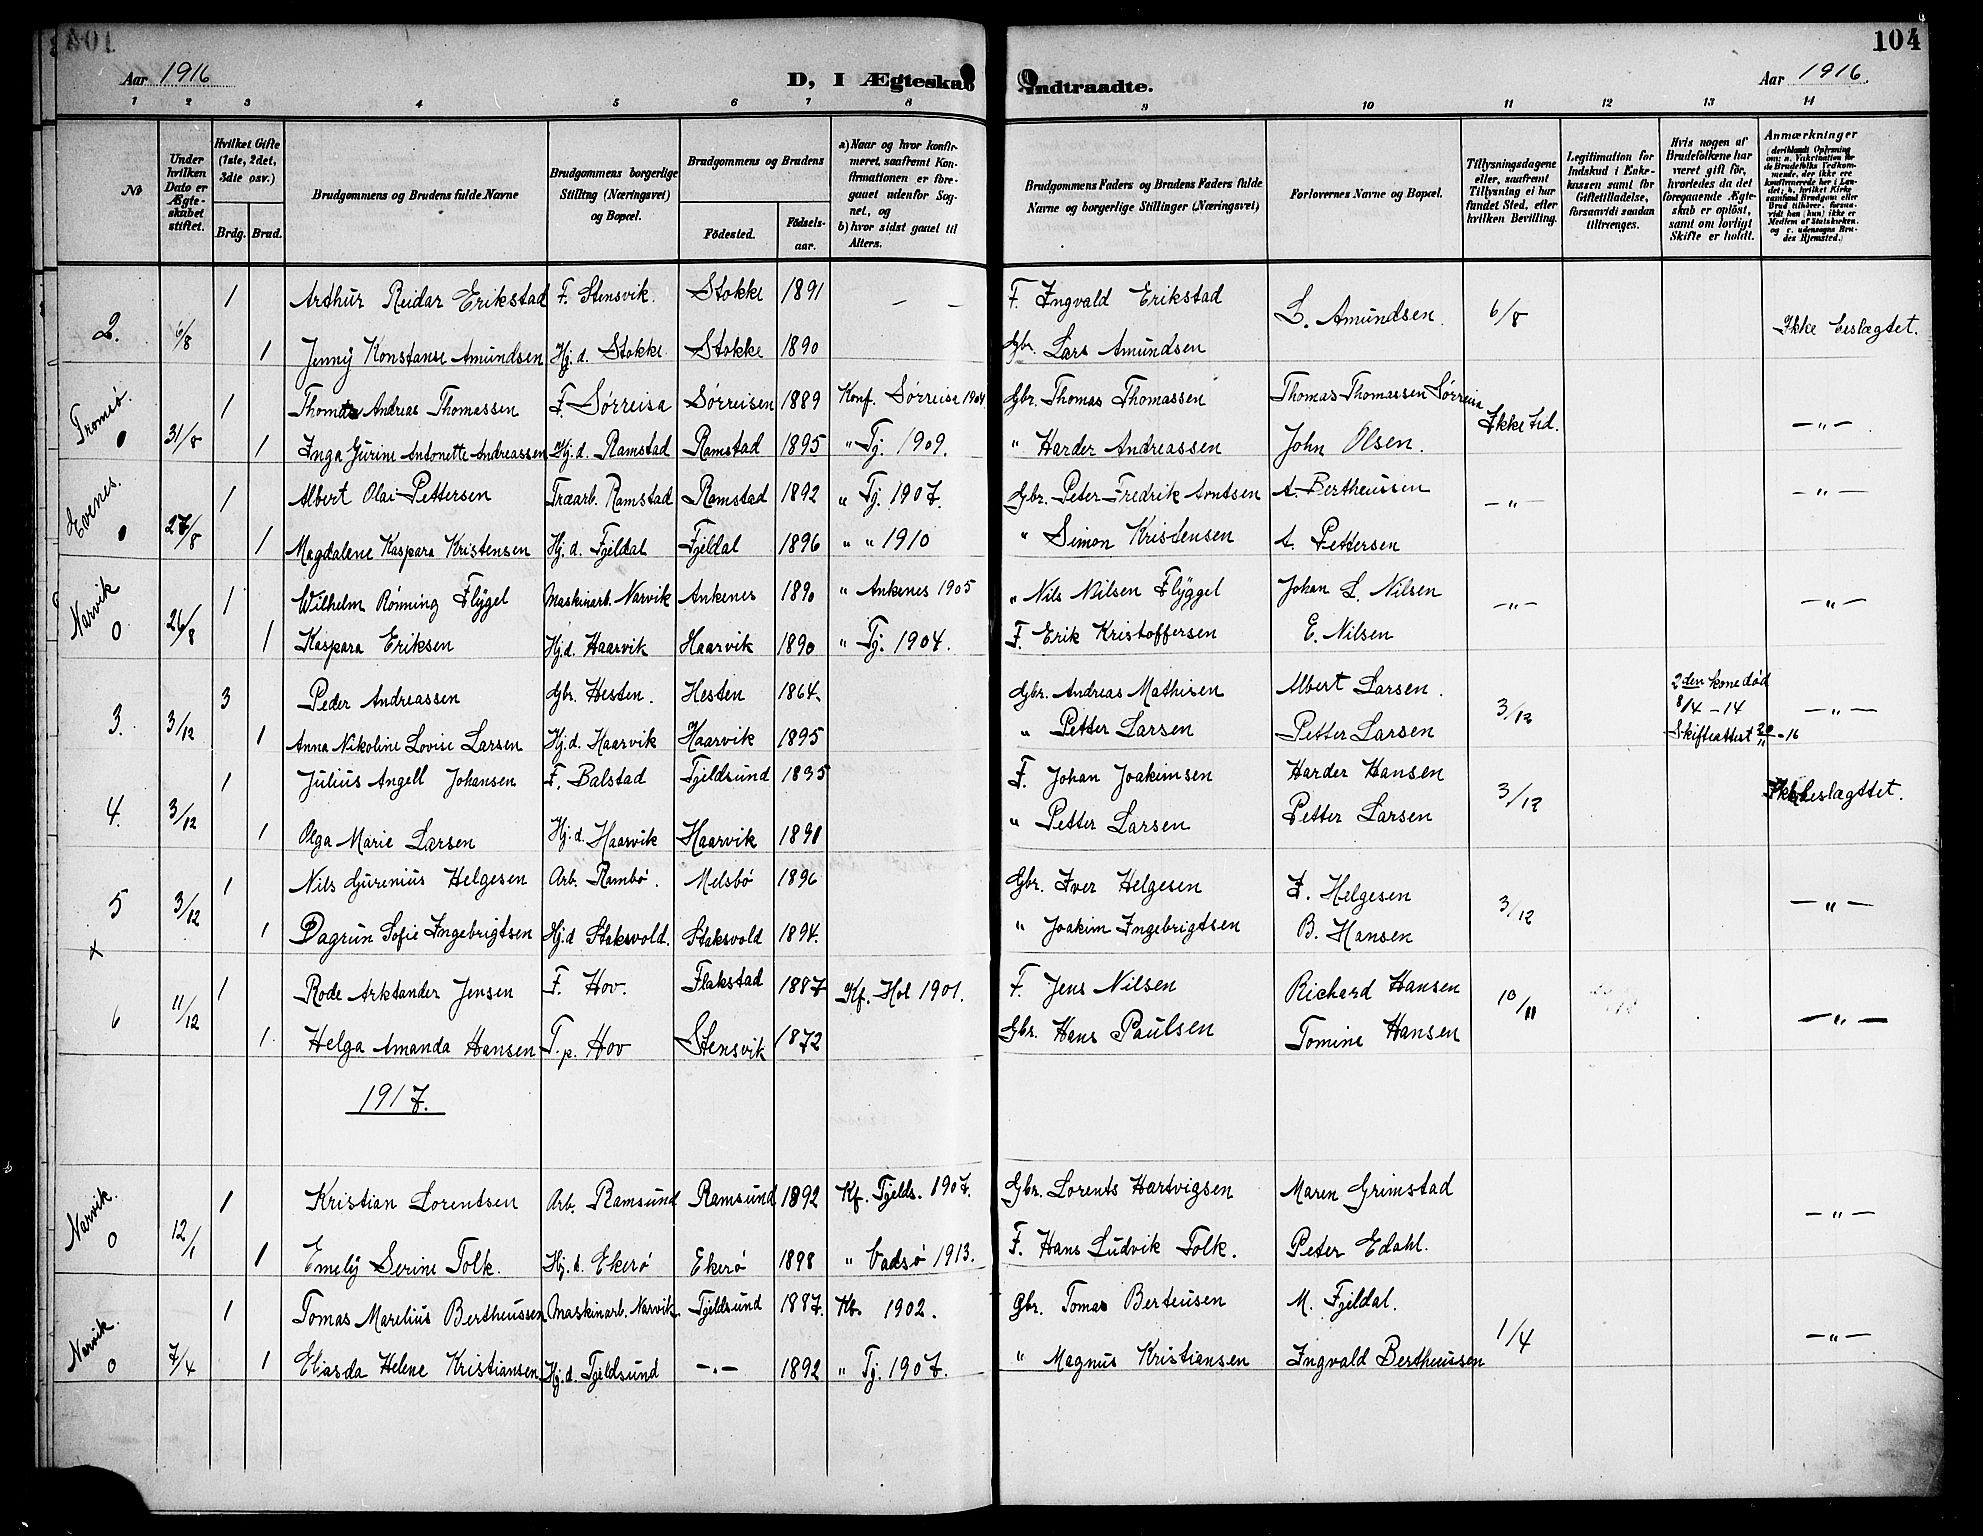 104
Aar 1916
D, I Ægteskab Indtraadte.
Aar 1916.
1 2 3 4 5 6 7 8 9 10 11 12 13 14
No
Under hvilken Dato er Ægteskabet stiftet.
Hvilket Gifte (1ste, 2det, 3die osv.)
Brdg. Brud.
Brudgommens og Brudens fulde Navne
Brudgommens borgerlige Stilling (Næringsvei) og Bopæl.
Brudgommens og Brudens
Födested.
Födselsaar.
a) Naar og hvor konfirmeret, saafremt Konfirmationen er foregaaet udenfor Sognet, og
b) hvor sidst gaaet til Alters.
Brudgommens Faders og Brudens Faders fulde Navne og borgerlige Stillinger (Næringsvei)
Forlovernes Navne og Bopæl.
Tillysningsdagene eller, saafremt Tillysning ei har fundet Sted, efter hvilken Bevilling.
Legitimation for Indskud i Enkekassen samt for Giftetilladelse, forsaavidt saadan tiltrænges.
Hvis nogen af Brudefolkene har været gift før, hvorledes da det foregaaende Ægteskab er oplöst, samt om lovligt Skifte er holdt.
Anmærkninger
2. 6/8 1 Arthur Reidar Erikstad F. Stensvik. Stokke 1891 — — F. Ingvald Erikstad L. Amundsen. 6/8 Ikke beslægtet.
1 Jenny Konstanse Amundsen Hj. d. Stokke Stokke 1890 Gbr. Lars Amundsen
Tromsö. 0 31/8 1 Thomas Andreas Thomassen F. Sørreisa Sørreisen 1889 Konf. Sørreisa 1904 Gbr. Thomas Thomassen Thomas Thomassen Sørreisa Ikke hd. — " —
1 Inga Jurine Antonette Andreassen Hj. d. Ramstad Ramstad 1895 " Tj. 1909. " Harder Andreassen John Olsen.
Evenes. 0 27/8 1 Albert Olai Pettersen Træarb. Ramstad Ramstad 1892 " Tj. 1907. Gbr. Peter Fredrik Arntsen A. Bertheussen — " — — " —
1 Magdalene Kaspara Kristensen Hj. d. Fjeldal Fjeldal 1896 " " 1910 " Simon Kristensen A. Pettersen
Narvik 0 26/8 1 Wilhelm Rønning Flygel Maskinarb. Narvik Ankenes 1890 " Ankenes 1905 " Nils Nilsen Flyggel Johan L. Nilsen — " — — " —
1 Kaspara Eriksen Hj. d. Haarvik Haarvik 1890 " Tj. 1904. F. Erik Kristoffersen E. Nilsen
3. 3/12 3 Peder Andreassen Gbr. Hesten. Hesten 1864. Gbr. Andreas Mathisen Albert Larsen. 3/12 2den kone død 8/4 – 14 Skifteattest 20/11 – 16 — " —
1 Anna Nikoline Lovise Larsen Hj. d. Haarvik Haarvik 1895 " Petter Larsen Petter Larsen
4. 3/12 1 Julius Angell Johansen F. Balstad Tjeldsund 1835 F. Johan Joakimsen Harder Hansen 3/12 Ikke beslægttet.
1 Olga Marie Larsen Hj. d. Haarvik Haarvik 1891 " Petter Larsen Petter Larsen
5 3/12 1 Nils Gurenius Helgesen Arb. Rambö. Melsbö 1896 Gbr. Iver Helgesen I. Helgesen 3/12 — " —
1 Dagrun Sofie Ingebrigtsen Hj. d Staksvold. Staksvold 1894. " Joakim Ingebrigtsen B. Hansen
x
6 11/12 1 Rode Arktander Jensen F. Hov. Flakstad 1887 Kf. Hol 1901. F. Jens Nilsen Richard Hansen 10/11 — " —
1. Helga Amanda Hansen T. p. Hov Stensvik 1872 Gbr. Hans Paulsen Tomine Hansen
1917.
Narvik. 0 12/1 1 Kristian Lorentsen Arb. Ramsund Ramsund 1892 Kf. Tjelds. 1907. Gbr. Lorents Hartvigsen Maren Grimstad — " —
1 Emely Serine Folk. Hj. d. Ekerö Ekerö 1898 " Vadsö 1913. F. Hans Ludvik Folk. Peter Edahl.
Narvik. 0 7/4 1 Tomas Marelius Bertheussen Maskinarb. Narvik. Tjeldsund 1887. Kf. 1902. Gbr. Tomas Berteusen M. Fjeldal. 1/4 — " —
1 Eliasda Helene Kristiansen Hj. d. Tjeldsund — " — 1892 " Tj. 1907. " Magnus Kristiansen Ingvald Bertheussen